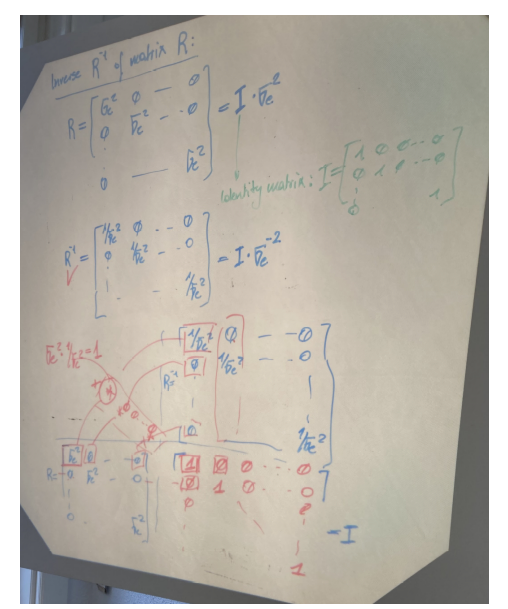 Inverse R⁻¹ of matrix R:
R = [ σe² 0 — 0
0 σe² - - 0
⋮
0 — σe² ] = I · σe⁻²
Identity matrix: I = [ 1 0 0 -- 0
0 1 0 -- 0
⋮
0 1 ]
R⁻¹ = [ 1/σe² 0 - - 0
0 1/σe² - - 0
⋮
1/σe² ] = I · σe⁻²
σe² · 1/σe² = 1
R⁻¹ = [ 1/σe² 0 — - 0
0 1/σe² - - 0
⋮
0 1/σe² ]
R = [ σe² 0 - - 0
0 σe² - - 0
⋮
0 σe² ]
[ 1 0 0 - - 0
0 1 0 - - 0
0
1 ] = I